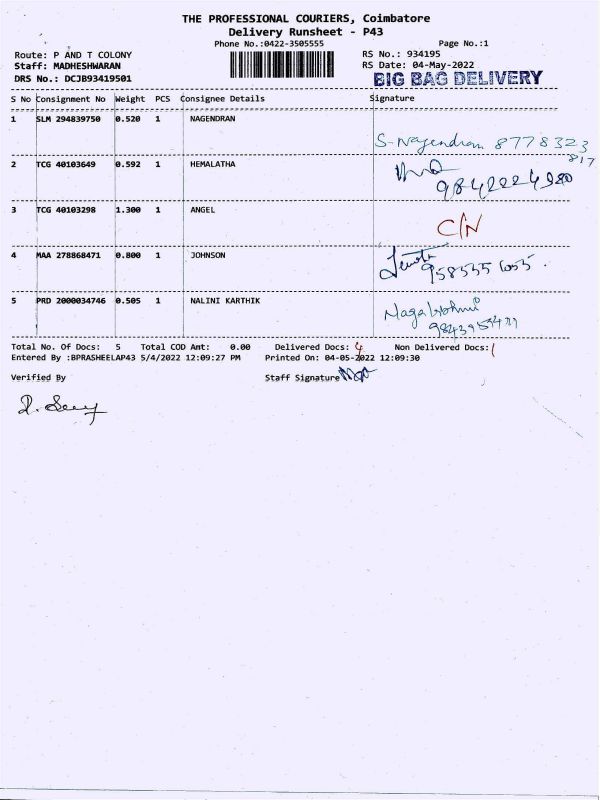 THE PROFESSIONAL COURIERS, Coimbatore
Delivery Runsheet - P43
Phone No.:0422-3505555 Page No.:1
Route: P AND T COLONY RS No.: 934195
Staff: MADHESHWARAN RS Date: 04-May-2022
DRS No.: DCJB93419501 BIG BAG DELIVERY
S No Consignment No Weight PCS Consignee Details Signature
1 SLM 294839750 0.520 1 NAGENDRAN
S-Nagendran 8778323
817
2 TCG 40103649 0.592 1 HEMALATHA
9842224980
3 TCG 40103298 1.300 1 ANGEL
C/N
4 MAA 278868471 0.800 1 JOHNSON
5 PRD 2000034746 0.505 1 NALINI KARTHIK
Total No. Of Docs: 5 Total COD Amt: 0.00 Delivered Docs: 4 Non Delivered Docs: 1
Entered By :BPRASHEELAP43 5/4/2022 12:09:27 PM Printed On: 04-05-2022 12:09:30
Verified By Staff Signature